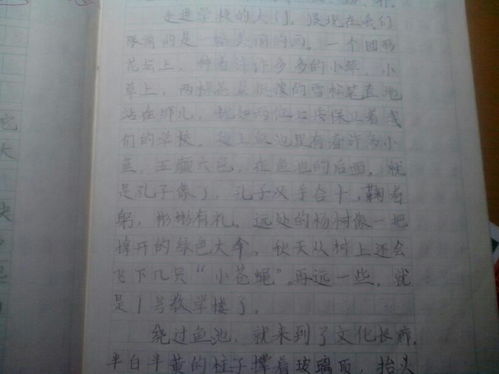 走进学校的大门，展现在我们
眼前的是一幅美丽的画。一个圆形
花坛上，种着许许多多的小草，小
草上，两棵
站在那儿，
们的学校。鱼池里有着许多小
鱼，五颜六色，在鱼池的后面，就
是孔子像了，孔子双手合十，鞠着
躬，彬彬有礼。远处的杨树像一把
撑开的绿色大伞，秋天从树上还会
飞下几只“小苍蝇”。再远一些，就
是1号教学楼了。
绕过鱼池，就来到了文化长廊，
半白半黄的柱子撑着玻璃顶，抬头